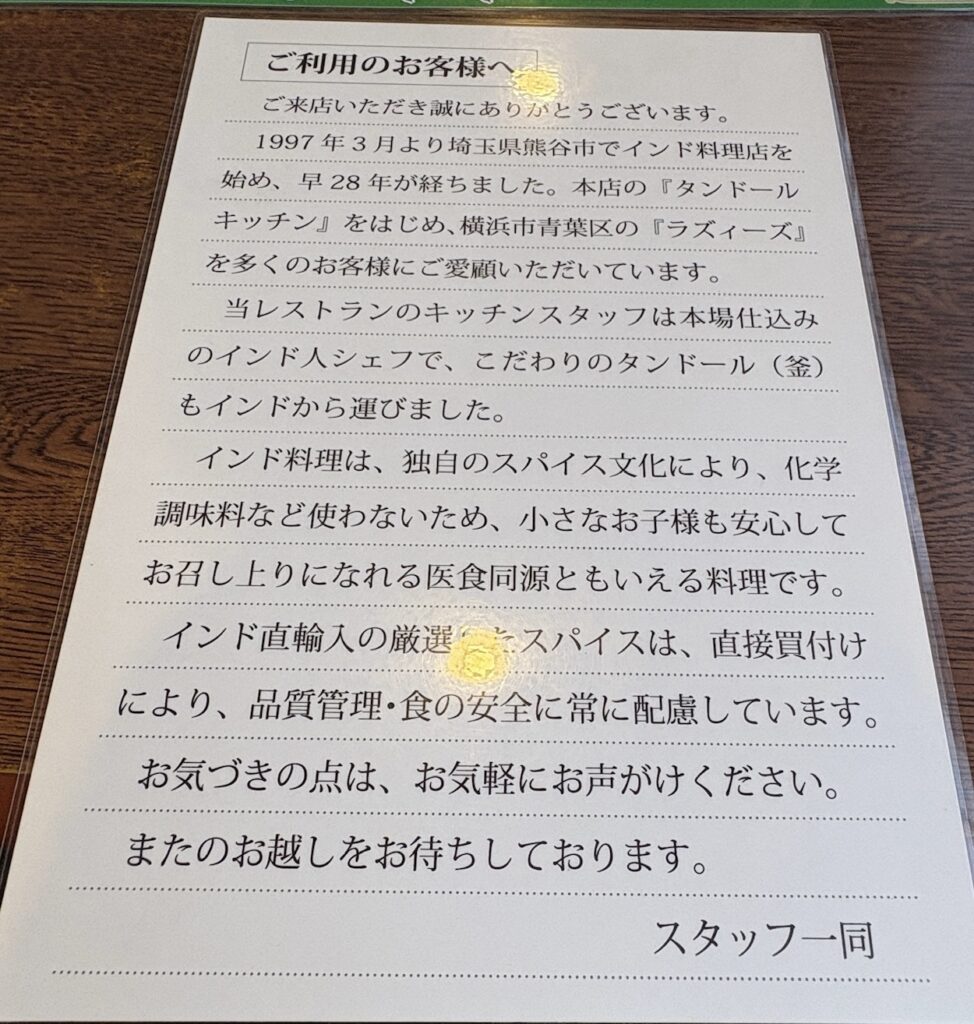 ご利用のお客様へ
ご来店いただき誠にありがとうございます。
1997年3月より埼玉県熊谷市でインド料理店を
始め、早28年が経ちました。本店の『タンドール
キッチン』をはじめ、横浜市青葉区の『ラズィーズ』
を多くのお客様にご愛顧いただいています。
当レストランのキッチンスタッフは本場仕込み
のインド人シェフで、こだわりのタンドール（釜）
もインドから運びました。
インド料理は、独自のスパイス文化により、化学
調味料など使わないため、小さなお子様も安心して
お召し上りになれる医食同源ともいえる料理です。
インド直輸入の厳選したスパイスは、直接買付け
により、品質管理・食の安全に常に配慮しています。
お気づきの点は、お気軽にお声がけください。
またのお越しをお待ちしております。
スタッフ一同